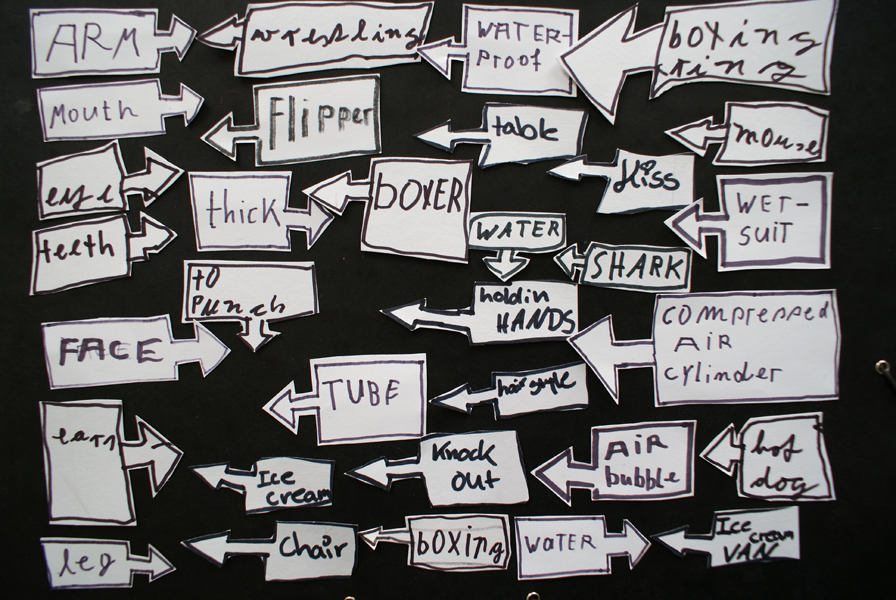 ARM
wrestling
WATER-
proof
boxing
ring
Mouth
Flipper
table
mouse
eye
thick
boxer
Kiss
WET-
SUIT
teeth
WATER
SHARK
to
punch
holdin
HANDS
compressed
AIR
cylinder
FACE
TUBE
hairstyle
Ice
cream
Knock
out
AIR
bubble
hot
dog
leg
Chair
boxing
WATER
Ice
cream
VAN